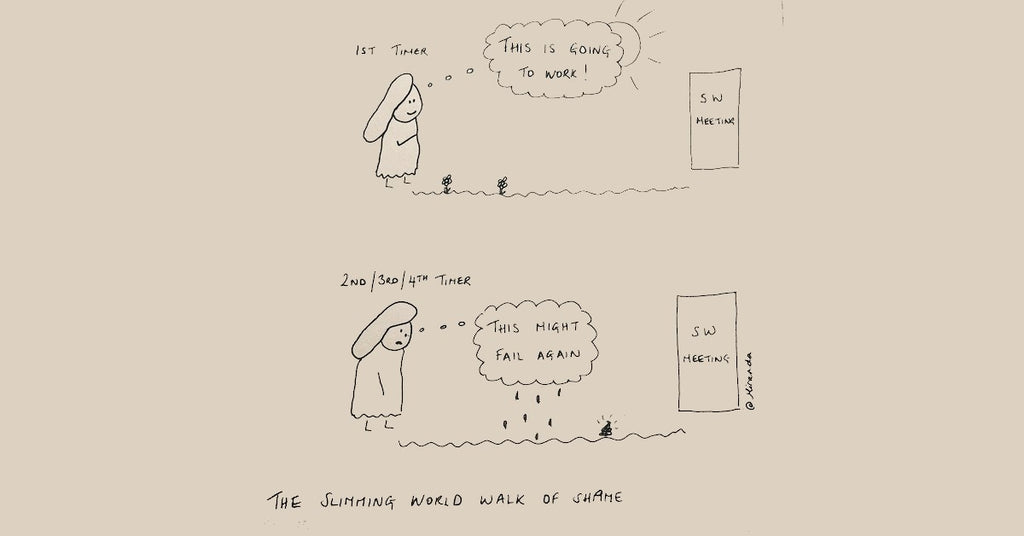 1ST TIMER
THIS IS GOING
TO WORK!
SW
MEETING
2ND/3RD/4TH TIMER
THIS MIGHT
FAIL AGAIN
SW
MEETING
@Miranda
THE SLIMMING WORLD WALK OF SHAME